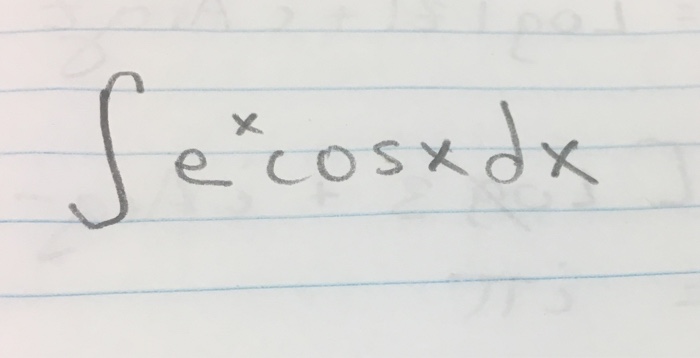 ∫ eˣ cosx dx